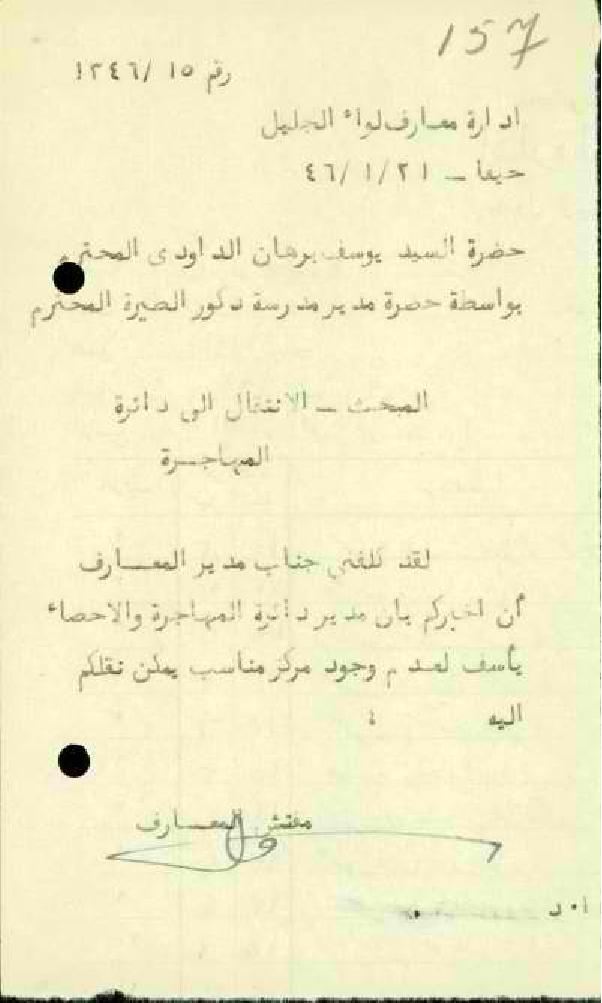 157
رقم ١٥ /١٢٤٦
ادارة معارف لواء الجليل
حيفا ـ ٤٦/١/٢١
حضرة السيد يوسف برهان الداودى المحترم
بواسطة حضرة مدير مدرسة ذكور الصيرة المحترم
المبحث ـ الانتقال الى دائرة
المهاجرة
لقد كلفني جناب مدير المعارف
أن اخبركم بان مدير دائرة المهاجرة والاحصاء
يأسف لعدم وجود مركز مناسب يمكن نقلكم
اليه
مفتش المعارف
ا٠د